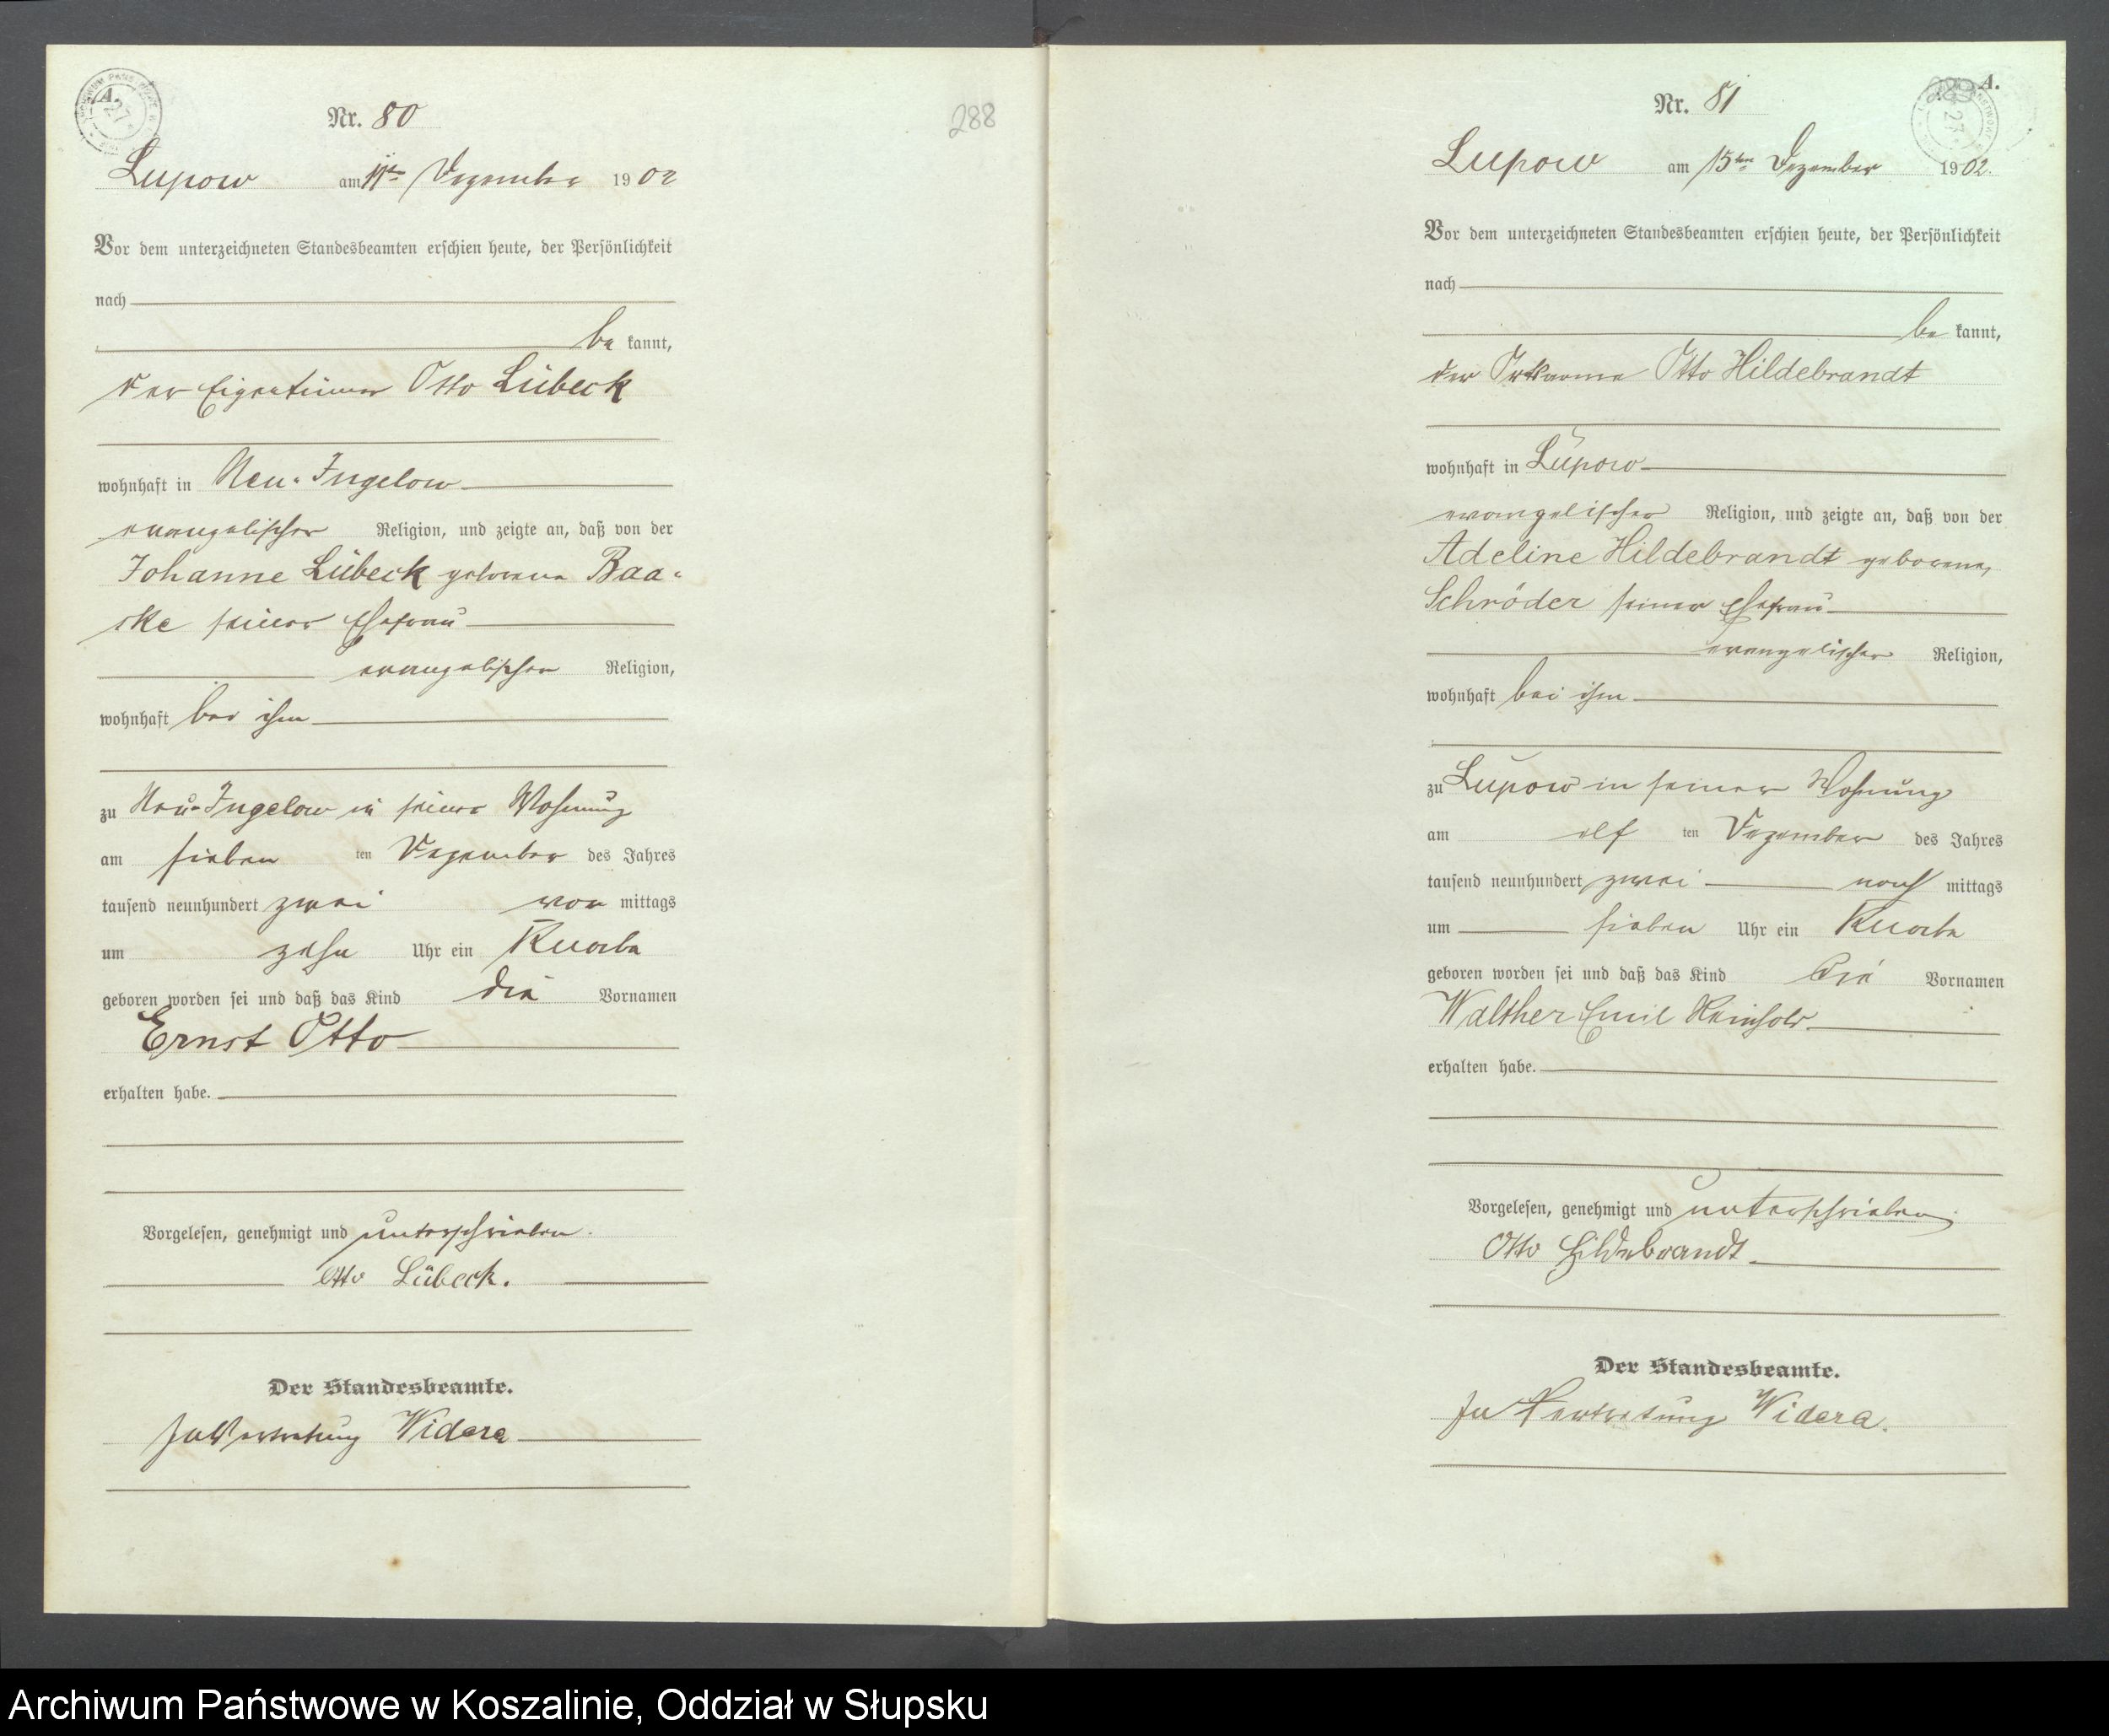 A.
Nr. 80
288
Lupow am 11ten Dezember 1902
Vor dem unterzeichneten Standesbeamten erschien heute, der Persönlichkeit
nach
be kannt,
der Eigentümer Otto Lübeck
wohnhaft in Neu-Jugelow
evangelischer Religion, und zeigte an, daß von der
Johanne Lübeck geborene Baa-
ske seiner Ehefrau
evangelischer Religion,
wohnhaft bei ihm
zu Neu-Jugelow in seiner Wohnung
am sieben ten Dezember des Jahres
tausend neunhundert zwei vor mittags
um zehn Uhr ein Knabe
geboren worden sei und daß das Kind die Vornamen
Ernst Otto
erhalten habe.
Vorgelesen, genehmigt und unterschrieben.
Otto Lübeck.
Der Standesbeamte.
In Vertretung Widera
A.
Nr. 81
Lupow am 15ten Dezember 1902.
Vor dem unterzeichneten Standesbeamten erschien heute, der Persönlichkeit
nach
be kannt,
der Otto Hildebrandt
wohnhaft in Lupow
evangelischer Religion, und zeigte an, daß von der
Adeline Hildebrandt geborene,
Schröder seiner Ehefrau
evangelischer Religion,
wohnhaft bei ihm
zu Lupow in seiner Wohnung
am elf ten Dezember des Jahres
tausend neunhundert zwei nach mittags
um sieben Uhr ein Knabe
geboren worden sei und daß das Kind die Vornamen
Walther Emil Reinhold
erhalten habe.
Vorgelesen, genehmigt und unterschrieben
Otto Hildebrandt
Der Standesbeamte.
In Vertretung Widera.
Archiwum Państwowe w Koszalinie, Oddział w Słupsku